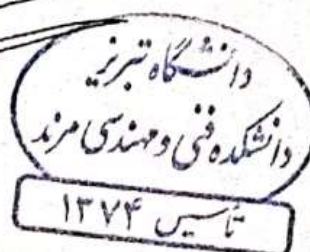 دانشگاه تبریز
دانشکده فنی و مهندسی مرند
تأسیس ۱۳۷۴